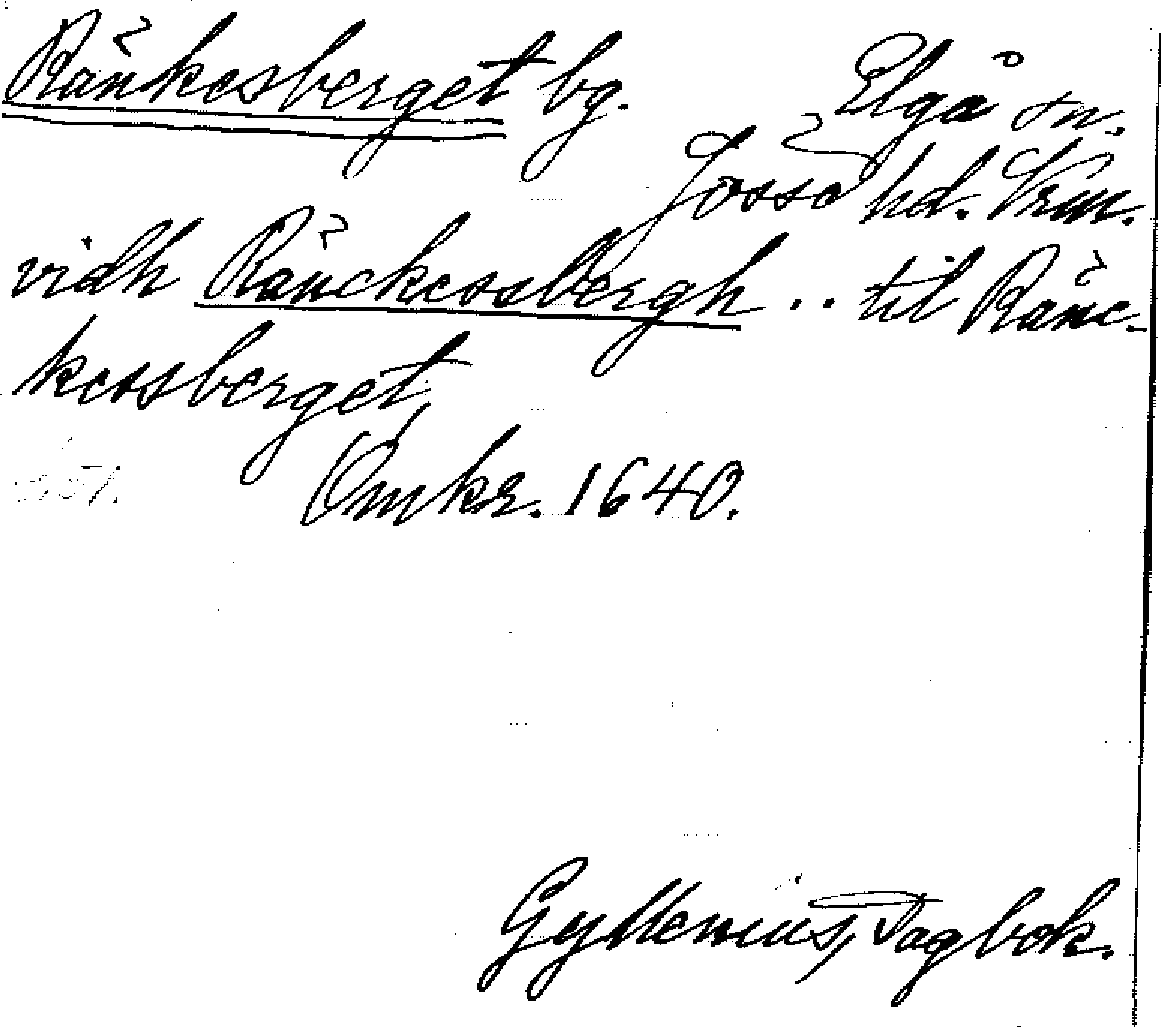 Ränkesberget bg. Elgå sn.
Jösse hd. Vrm.
vidh Ränckessbergh .. til Ränc-
kessberget,
Omkr. 1640.
Gyllenius, Dagbok.